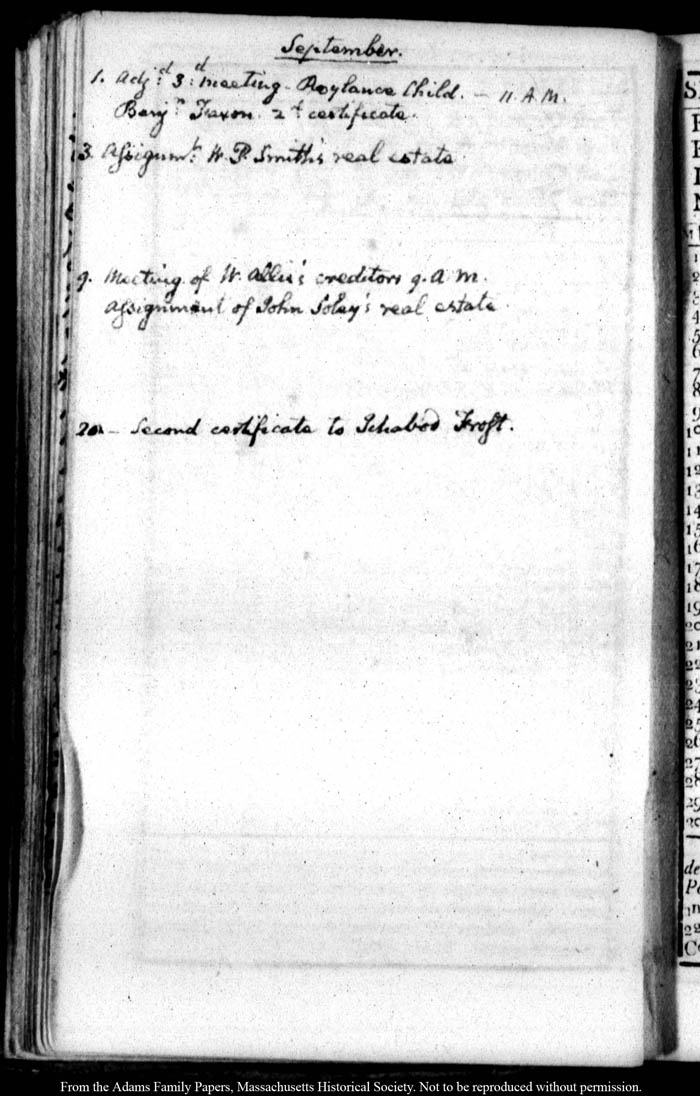 September.
1. Adj:d 3:d meeting - Roylance Child. — 11. A.M.
Benj:n Faxon. 2d certificate.
3. Assignmt: W. P. Smith's real estate.
9. Meeting of W. Allen's creditors 9. A M.
Assignment of John Soley's real estate.
20. — Second certificate to Ichabod Frost.
S
1
2
3
4
5
6
7
8
9
10
11
12
13
14
15
16
17
18
19
20
21
22
23
24
25
26
27
28
29
30
de
From the Adams Family Papers, Massachusetts Historical Society. Not to be reproduced without permission.